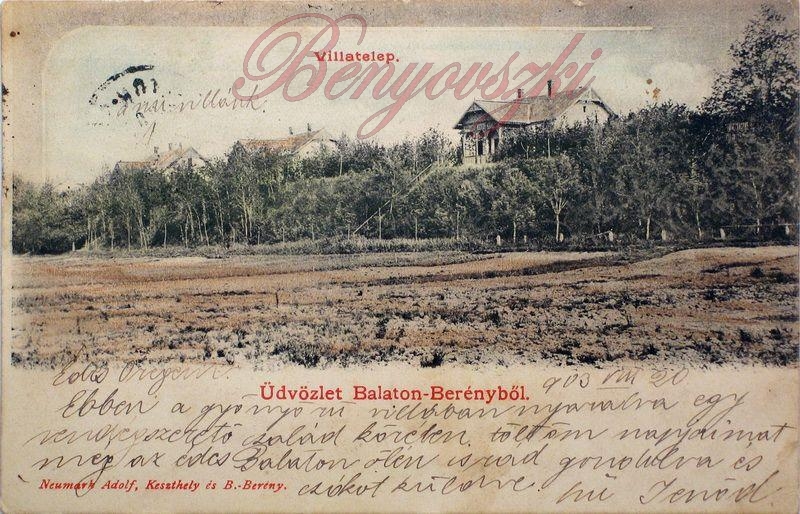 Villatelep.
Benyovszki
a mi villánk.
Üdvözlet Balaton-Berényből.
903 VIII 20
Ebben a gyönyörű villában nyaralva egy
család körében, töltöm napjaimat
meg az édes Balaton ölén is rád gondolva és
Neumark Adolf, Keszthely és B.-Berény.
csókot küldve
hű Jenőd